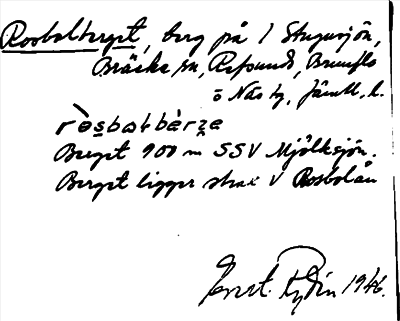 Rosbolberget, berg på 1 Stugusjön,
Bräcke sn, Refsunds, Brunflo
o Näs tg, Jämtl. l.
ròsbatbàrze
Berget 900 m SSV Mjölksjön.
Berget ligger strax V Rosbolån
Ernst Rydin 1946.